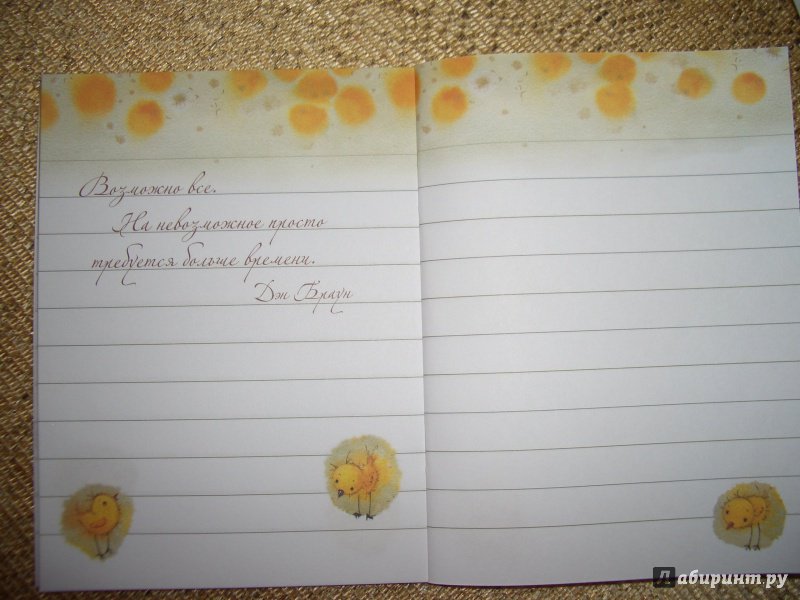 Возможно все.
На невозможное просто
требуется больше времени.
Дэн Браун
Лабиринт.ру